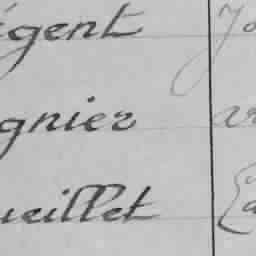 égent
gnier
ueillet